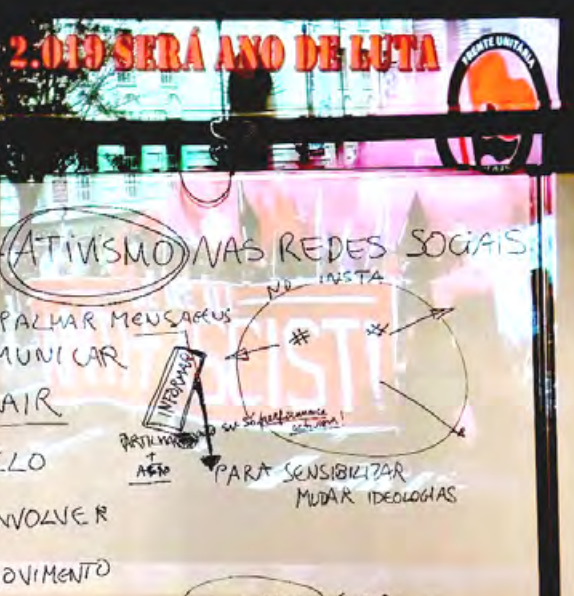 2.019 SERÁ ANO DE LUTA
FRENTE UNITÁRIA
ATIVISMO NAS REDES SOCIAIS
NO INSTA
PALHAR MENSAGENS
MUNICAR
# #
AIR
INFORMAR
CIST!
só performance
+
AÇÃO
LLO
PARA SENSIBILIZAR
MUDAR IDEOLOGIAS
NVOLVER
OVIMENTO